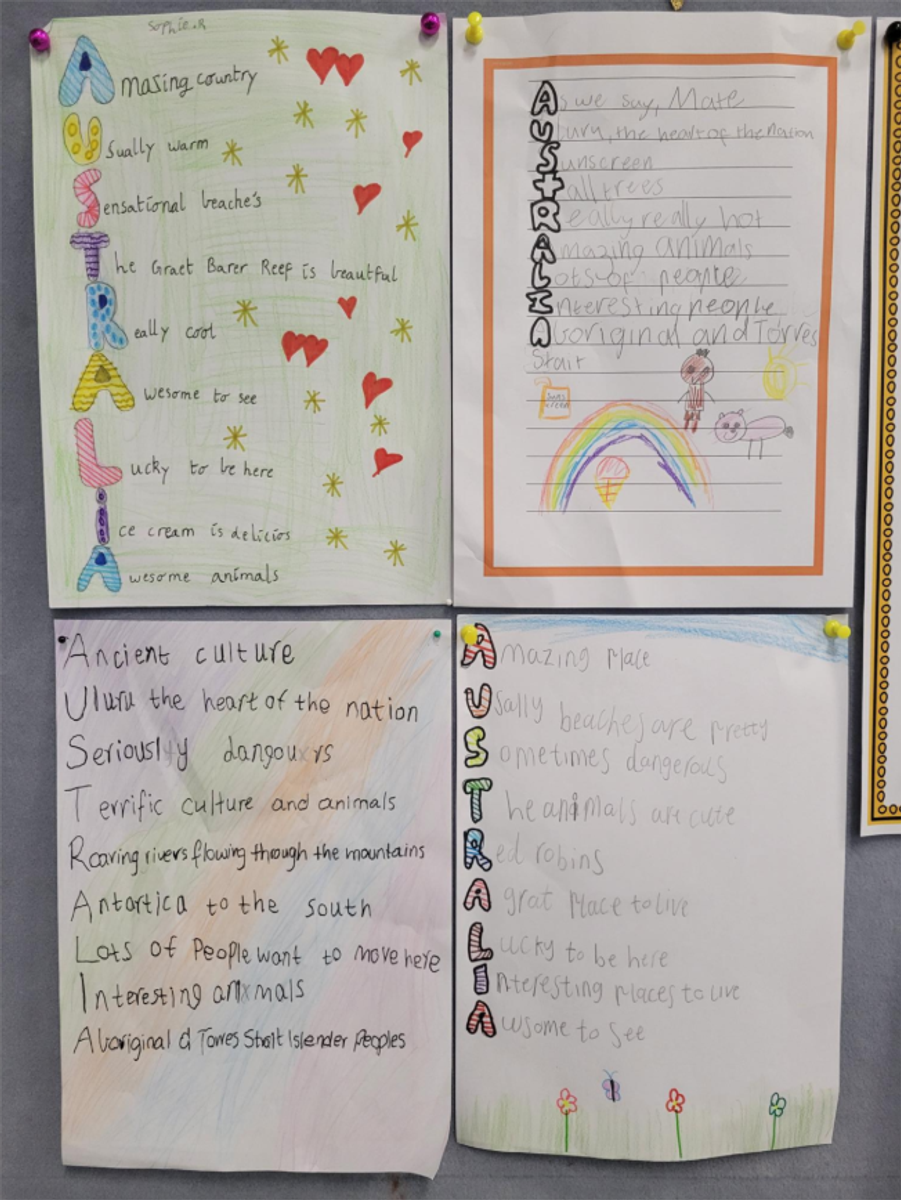 Sophie.R
Amazing country
Usually warm
Sensational beache's
The Graet Barer Reef is beautful
Really cool
Awesome to see
Lucky to be here
Ice cream is delicios
Awesome animals
As we say, Mate
Uluru, the heart of the nation
Sunscreen
Tall trees
Really really hot
Amazing animals
Lots of people
Interesting people
Aboriginal and Torres
Strait
Suns
creen
Ancient culture
Uluru the heart of the nation
Seriously dangours
Terrific culture and animals
Roaring rivers flowing through the mountains
Antartica to the south
Lots of people want to move here
Interesting animals
Aboriginal & Torres Strait Islender Peoples
Amazing place
Usally beaches are pretty
Sometimes dangerous
The animals are cute
Red robins
A grat place to live
Lucky to be here
Interesting places to live
Awsome to see